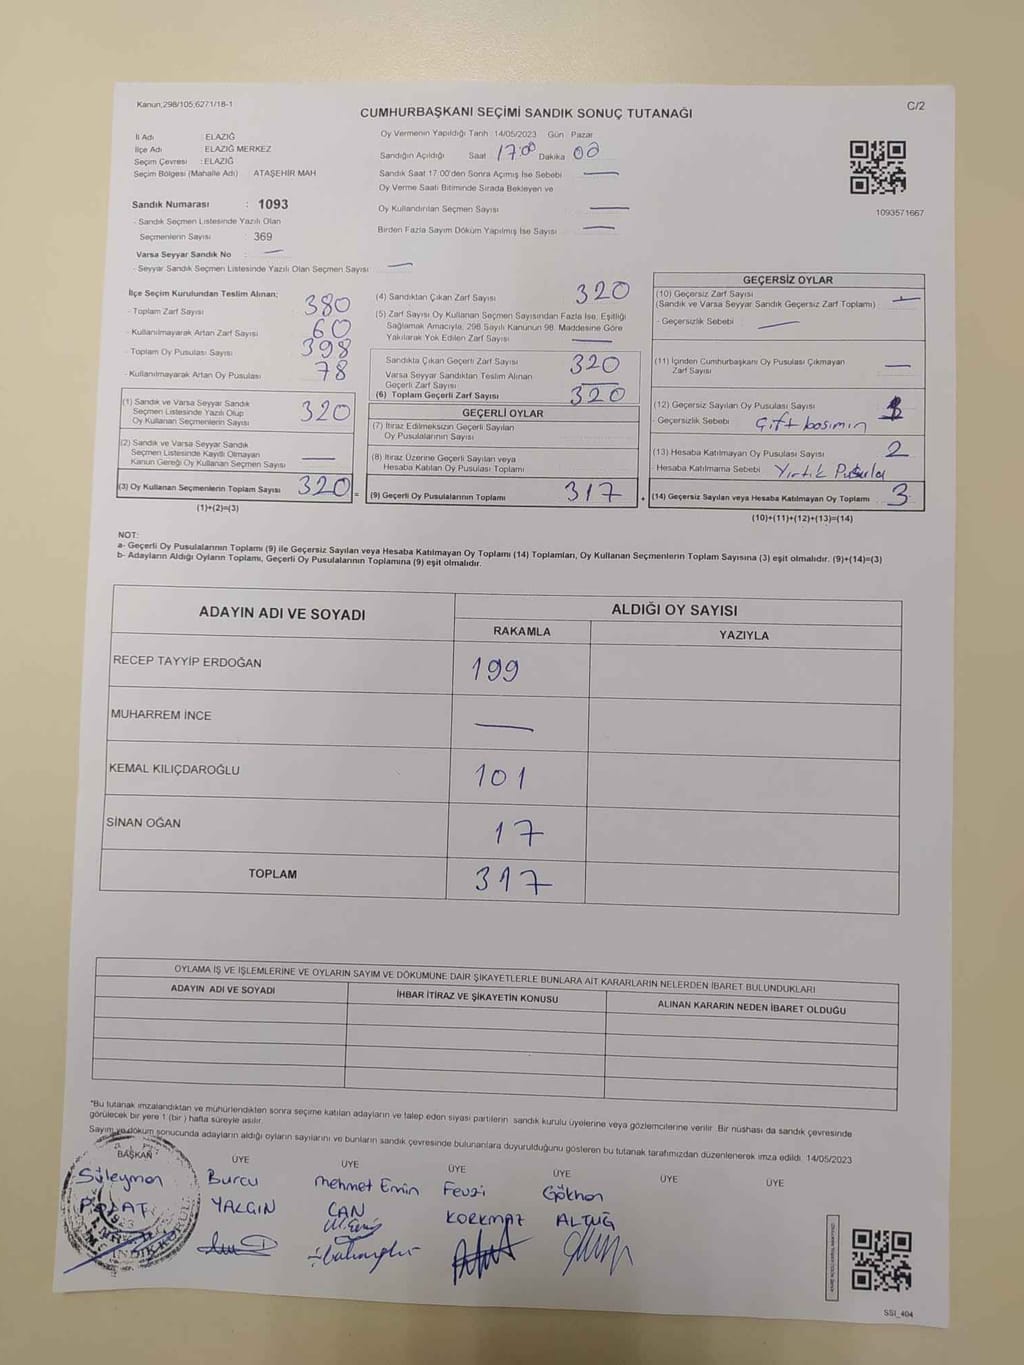 Kanun,298/105,6271/18-1
C/2
CUMHURBAŞKANI SEÇİMİ SANDIK SONUÇ TUTANAĞI
İl Adı : ELAZIĞ
İlçe Adı : ELAZIĞ MERKEZ
Seçim Çevresi : ELAZIĞ
Seçim Bölgesi (Mahalle Adı) ATAŞEHİR MAH
Sandık Numarası : 1093
- Sandık Seçmen Listesinde Yazılı Olan
Seçmenlerin Sayısı : 369
Varsa Seyyar Sandık No : —
- Seyyar Sandık Seçmen Listesinde Yazılı Olan Seçmen Sayısı —
Oy Vermenin Yapıldığı Tarih :14/05/2023 Gün : Pazar
Sandığın Açıldığı Saat 17:00 Dakika 00
Sandık Saat 17:00'den Sonra Açımış İse Sebebi —
Oy Verme Saati Bitiminde Sırada Bekleyen ve
Oy Kullandırılan Seçmen Sayısı —
Birden Fazla Sayım Döküm Yapılmış İse Sayısı —
1093571667
İlçe Seçim Kurulundan Teslim Alınan;
- Toplam Zarf Sayısı 380
- Kullanılmayarak Artan Zarf Sayısı 60
- Toplam Oy Pusulası Sayısı 398
- Kullanılmayarak Artan Oy Pusulası 78
(1) Sandık ve Varsa Seyyar Sandık
Seçmen Listesinde Yazılı Olup
Oy Kullanan Seçmenlerin Sayısı 320
(2) Sandık ve Varsa Seyyar Sandık
Seçmen Listesinde Kayıtlı Olmayan
Kanun Gereği Oy Kullanan Seçmen Sayısı —
(3) Oy Kullanan Seçmenlerin Toplam Sayısı 320 =
(1)+(2)=(3)
(4) Sandıktan Çıkan Zarf Sayısı 320
(5) Zarf Sayısı Oy Kullanan Seçmen Sayısından Fazla İse, Eşitliği
Sağlamak Amacıyla, 298 Sayılı Kanunun 98. Maddesine Göre
Yakılarak Yok Edilen Zarf Sayısı —
Sandıkta Çıkan Geçerli Zarf Sayısı 320
Varsa Seyyar Sandıktan Teslim Alınan
Geçerli Zarf Sayısı —
(6) Toplam Geçerli Zarf Sayısı 320
GEÇERLİ OYLAR
(7) İtiraz Edilmeksizin Geçerli Sayılan
Oy Pusulalarının Sayısı
(8) İtiraz Üzerine Geçerli Sayılan veya
Hesaba Katılan Oy Pusulası Toplamı
(9) Geçerli Oy Pusulalarının Toplamı 317 +
GEÇERSİZ OYLAR
(10) Geçersiz Zarf Sayısı —
(Sandık ve Varsa Seyyar Sandık Geçersiz Zarf Toplamı)
- Geçersizlik Sebebi : —
(11) İçinden Cumhurbaşkanı Oy Pusulası Çıkmayan
Zarf Sayısı —
(12) Geçersiz Sayılan Oy Pusulası Sayısı 1
- Geçersizlik Sebebi : Çift basımın
(13) Hesaba Katılmayan Oy Pusulası Sayısı 2
Hesaba Katılmama Sebebi Yırtık Pusula
(14) Geçersiz Sayılan veya Hesaba Katılmayan Oy Toplamı 3
(10)+(11)+(12)+(13)=(14)
NOT:
a- Geçerli Oy Pusulalarının Toplamı (9) ile Geçersiz Sayılan veya Hesaba Katılmayan Oy Toplamı (14) Toplamları, Oy Kullanan Seçmenlerin Toplam Sayısına (3) eşit olmalıdır. (9)+(14)=(3)
b- Adayların Aldığı Oyların Toplamı, Geçerli Oy Pusulalarının Toplamına (9) eşit olmalıdır.
ADAYIN ADI VE SOYADI ALDIĞI OY SAYISI
RAKAMLA YAZIYLA
RECEP TAYYİP ERDOĞAN 199
MUHARREM İNCE —
KEMAL KILIÇDAROĞLU 101
SİNAN OĞAN 17
TOPLAM 317
OYLAMA İŞ VE İŞLEMLERİNE VE OYLARIN SAYIM VE DÖKÜMÜNE DAİR ŞİKAYETLERLE BUNLARA AİT KARARLARIN NELERDEN İBARET BULUNDUKLARI
ADAYIN ADI VE SOYADI İHBAR İTİRAZ VE ŞİKAYETİN KONUSU ALINAN KARARIN NEDEN İBARET OLDUĞU
*Bu tutanak imzalandıktan ve mühürlendikten sonra seçime katılan adayların ve talep eden siyasi partilerin sandık kurulu üyelerine veya gözlemcilerine verilir. Bir nüshası da sandık çevresinde
görülecek bir yere 1 (bir) hafta süreyle asılır.
Sayım ve döküm sonucunda adayların aldığı oyların sayılarını ve bunların sandık çevresinde bulunanlara duyurulduğunu gösteren bu tutanak tarafımızdan düzenlenerek imza edildi. 14/05/2023
BAŞKAN ÜYE ÜYE ÜYE ÜYE ÜYE ÜYE
Süleyman Burcu Mehmet Emin Fevzi Gökhan
POLAT YALGIN CAN KORKMAZ ALTUĞ
SSI_404